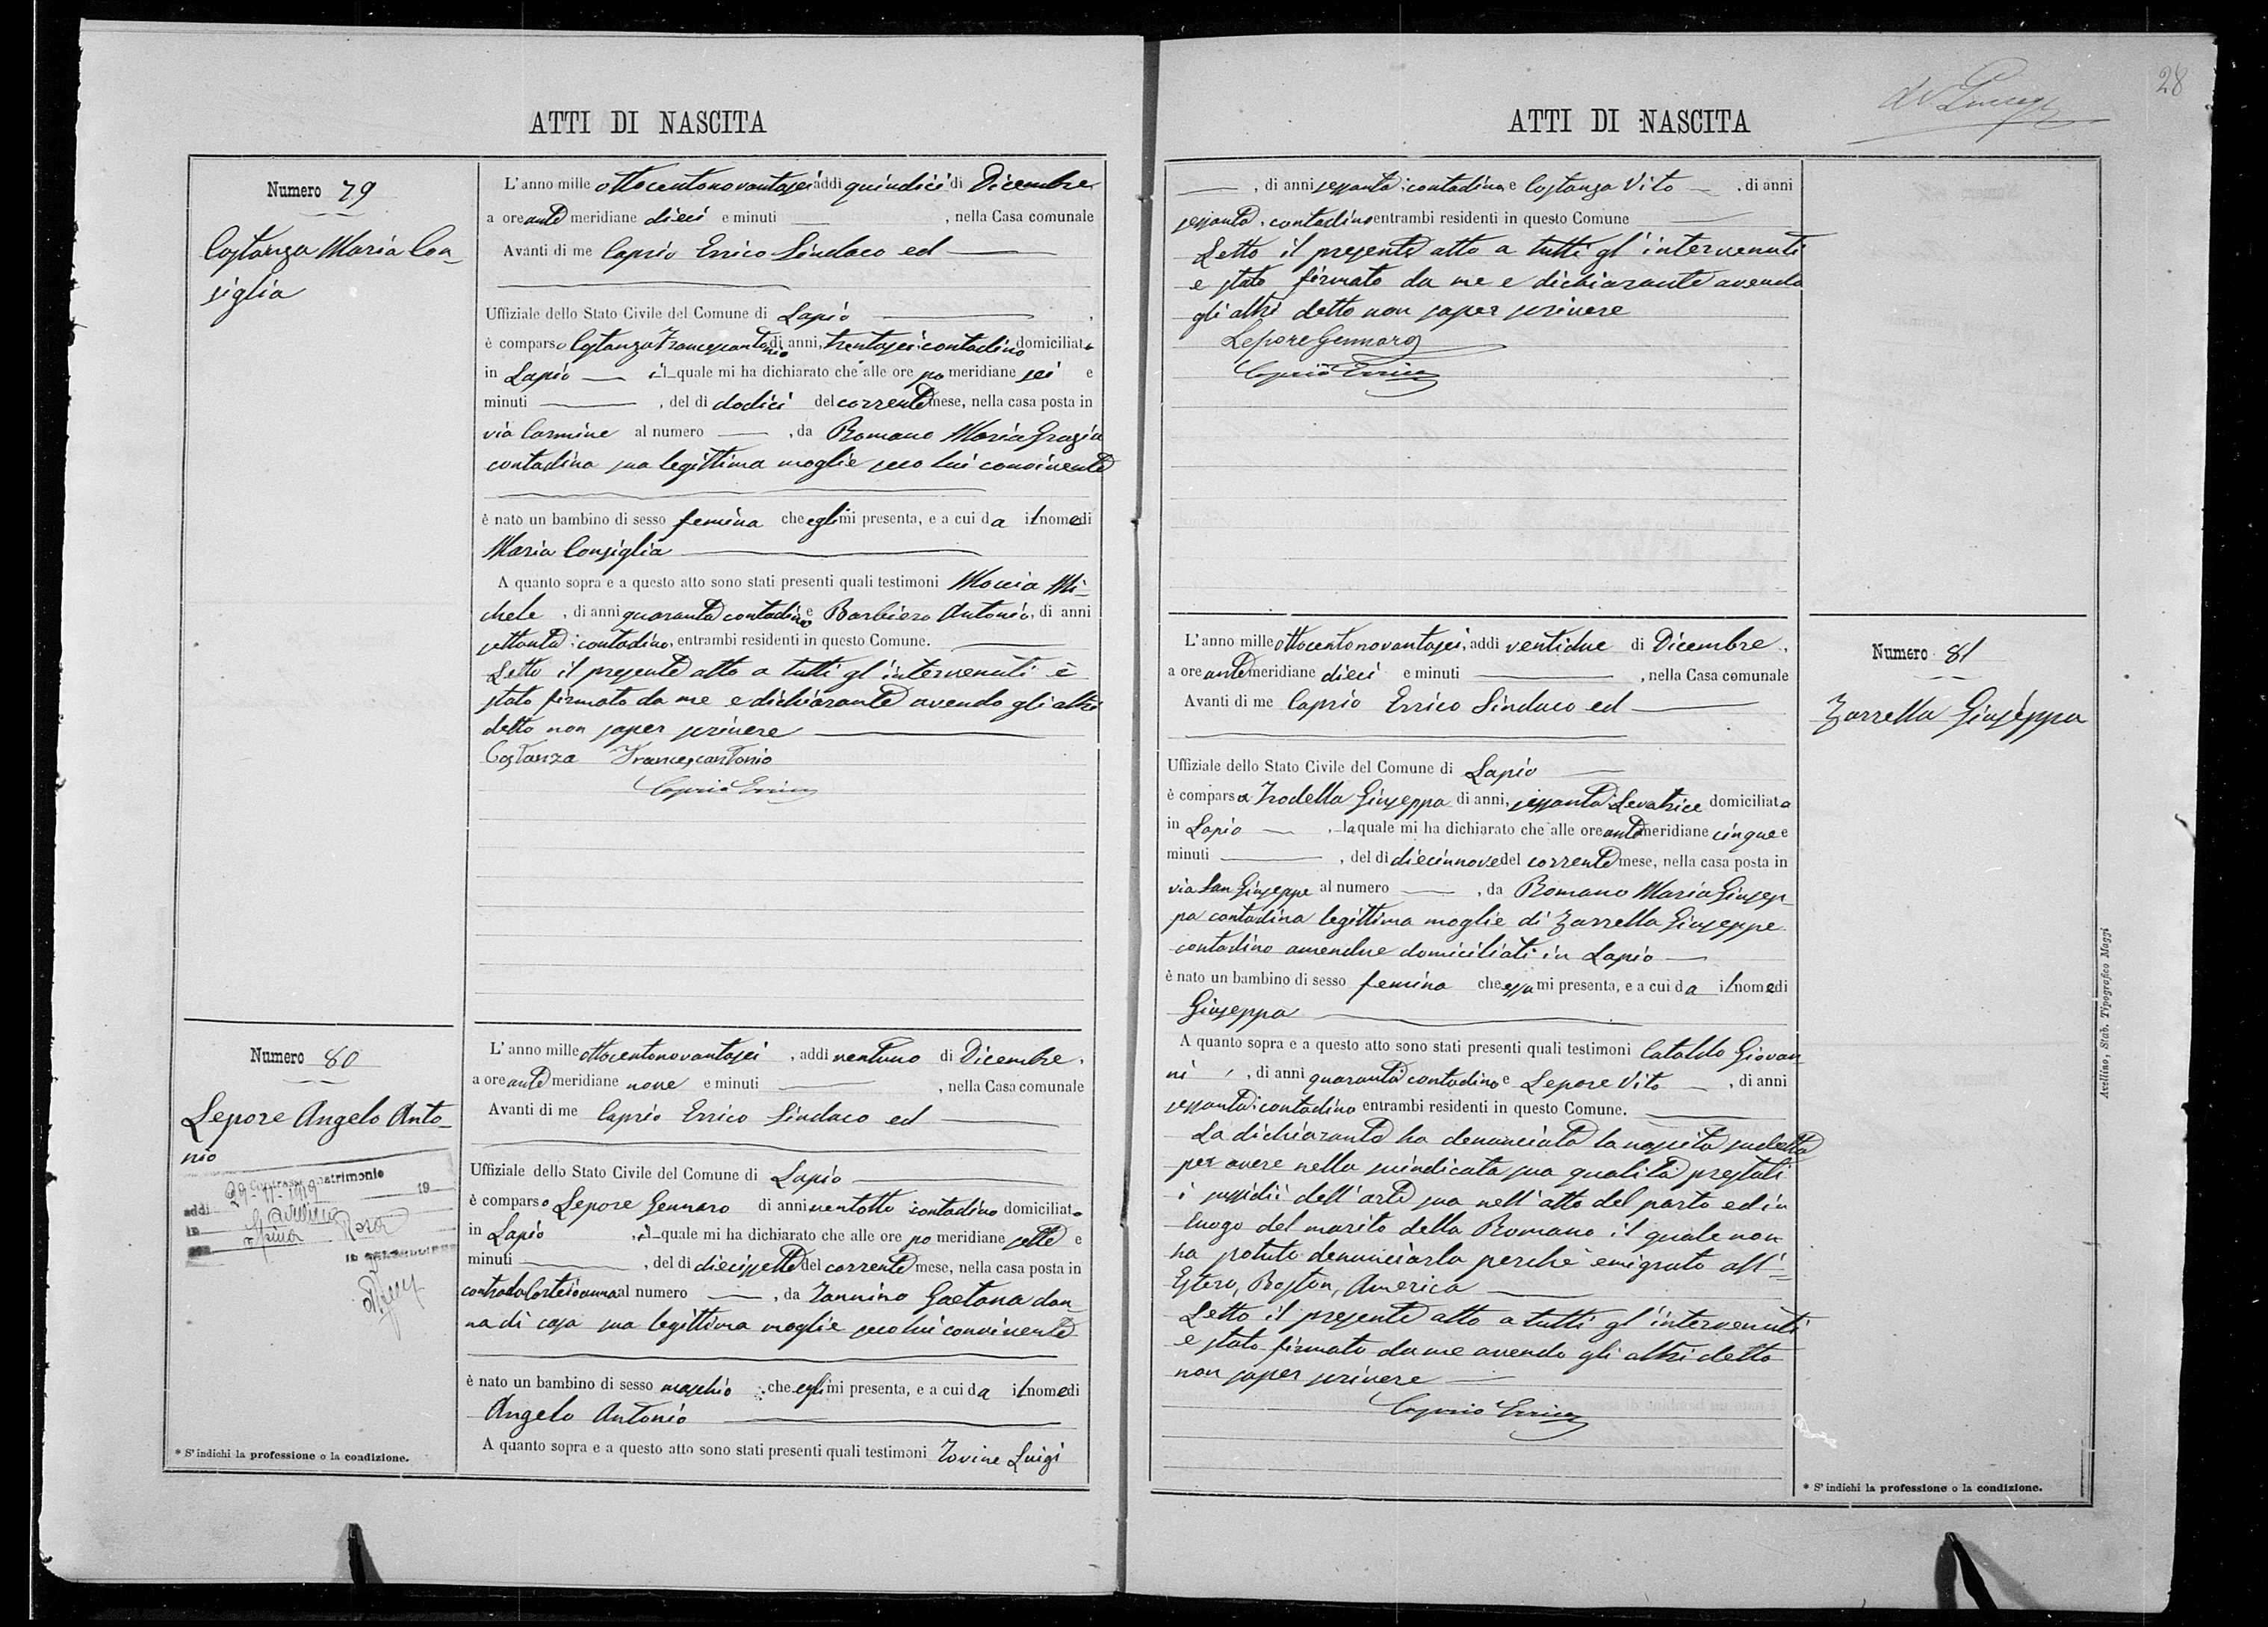 28
ATTI DI NASCITA
Numero 79
Costanza Maria Con-
siglia
L'anno mille ottocentonovantasei addi quindici di Dicembre
a ore ante meridiane dieci e minuti , nella Casa comunale
Avanti di me Caprio Errico Sindaco ed
Uffiziale dello Stato Civile del Comune di Lapio ,
è comparso Costanza Francescantonio di anni, trentasei contadino domiciliato
in Lapio il quale mi ha dichiarato che alle ore po meridiane sei e
minuti , del dì dodici del corrente mese, nella casa posta in
via Carmine al numero , da Romano Maria Grazia
contadina sua legittima moglie seco lui convivente
è nato un bambino di sesso femina che egli mi presenta, e a cui da il nome di
Maria Consiglia
A quanto sopra e a questo atto sono stati presenti quali testimoni Moccia Mi-
chele , di anni quaranta contadino e Barbiero Antonio, di anni
settanta contadino, entrambi residenti in questo Comune.
Letto il presente atto a tutti gl'intervenuti è
stato firmato da me e dichiarante avendo gli altri
detto non saper scrivere
Costanza Francescantonio
Caprio Errico
Numero 80
Lepore Angelo Anto-
nio
matrimonio
addi 29-11-1919 19
in Avellino
Spina Rosa
L'anno mille ottocentonovantasei , addi ventuno di Dicembre,
a ore ante meridiane nove e minuti , nella Casa comunale
Avanti di me Caprio Errico Sindaco ed
Uffiziale dello Stato Civile del Comune di Lapio
è comparso Lepore Gennaro di anni ventotto contadino domiciliato
in Lapio , il quale mi ha dichiarato che alle ore po meridiane sette e
minuti , del dì diecissette del corrente mese, nella casa posta in
contrada al numero , da Iannino Gaetana don-
na di casa sua legittima moglie seco lui convivente
è nato un bambino di sesso maschio che egli mi presenta, e a cui da il nome di
Angelo Antonio
A quanto sopra e a questo atto sono stati presenti quali testimoni Iovine Luigi
* S'indichi la professione o la condizione.
ATTI DI NASCITA
, di anni sessanta contadino e Costanza Vito , di anni
sessanta, contadino entrambi residenti in questo Comune
Letto il presente atto a tutti gl'intervenuti
e stato firmato da me e dichiarante avendo
gli altri detto non saper scrivere
Lepore Gennaro
Caprio Errico
Numero 81
Zarrella Giuseppa
L'anno mille ottocentonovantasei, addi ventidue di Dicembre,
a ore ante meridiane dieci e minuti , nella Casa comunale
Avanti di me Caprio Errico Sindaco ed
Uffiziale dello Stato Civile del Comune di Lapio
è comparsa Trodella Giuseppa di anni, sessanta Levatrice domiciliata
in Lapio , la quale mi ha dichiarato che alle ore ante meridiane cinque e
minuti , del dì diecinnove del corrente mese, nella casa posta in
via San Giuseppe al numero , da Romano Maria Giusep-
pa contadina legittima moglie di Zarrella Giuseppe
contadino amendue domiciliati in Lapio
è nato un bambino di sesso femina che essa mi presenta, e a cui da il nome di
Giuseppa
A quanto sopra e a questo atto sono stati presenti quali testimoni Cataldo Giovan-
ni , di anni quaranta contadino e Lepore Vito , di anni
sessanta contadino entrambi residenti in questo Comune.
La dichiarante ha denunciata la nascita suddetta
per avere nella suindicata sua qualità prestati
i sussidii dell'arte sua nell'atto del parto ed in
luogo del marito della Romano il quale non
ha potuto denunciarla perchè emigrato all'
Estero, Boston, America
Letto il presente atto a tutti gl'intervenuti
e stato firmato da me avendo gli altri detto
non saper scrivere
Caprio Errico
* S'indichi la professione o la condizione.
Avellino, Stab. Tipografico Maggi